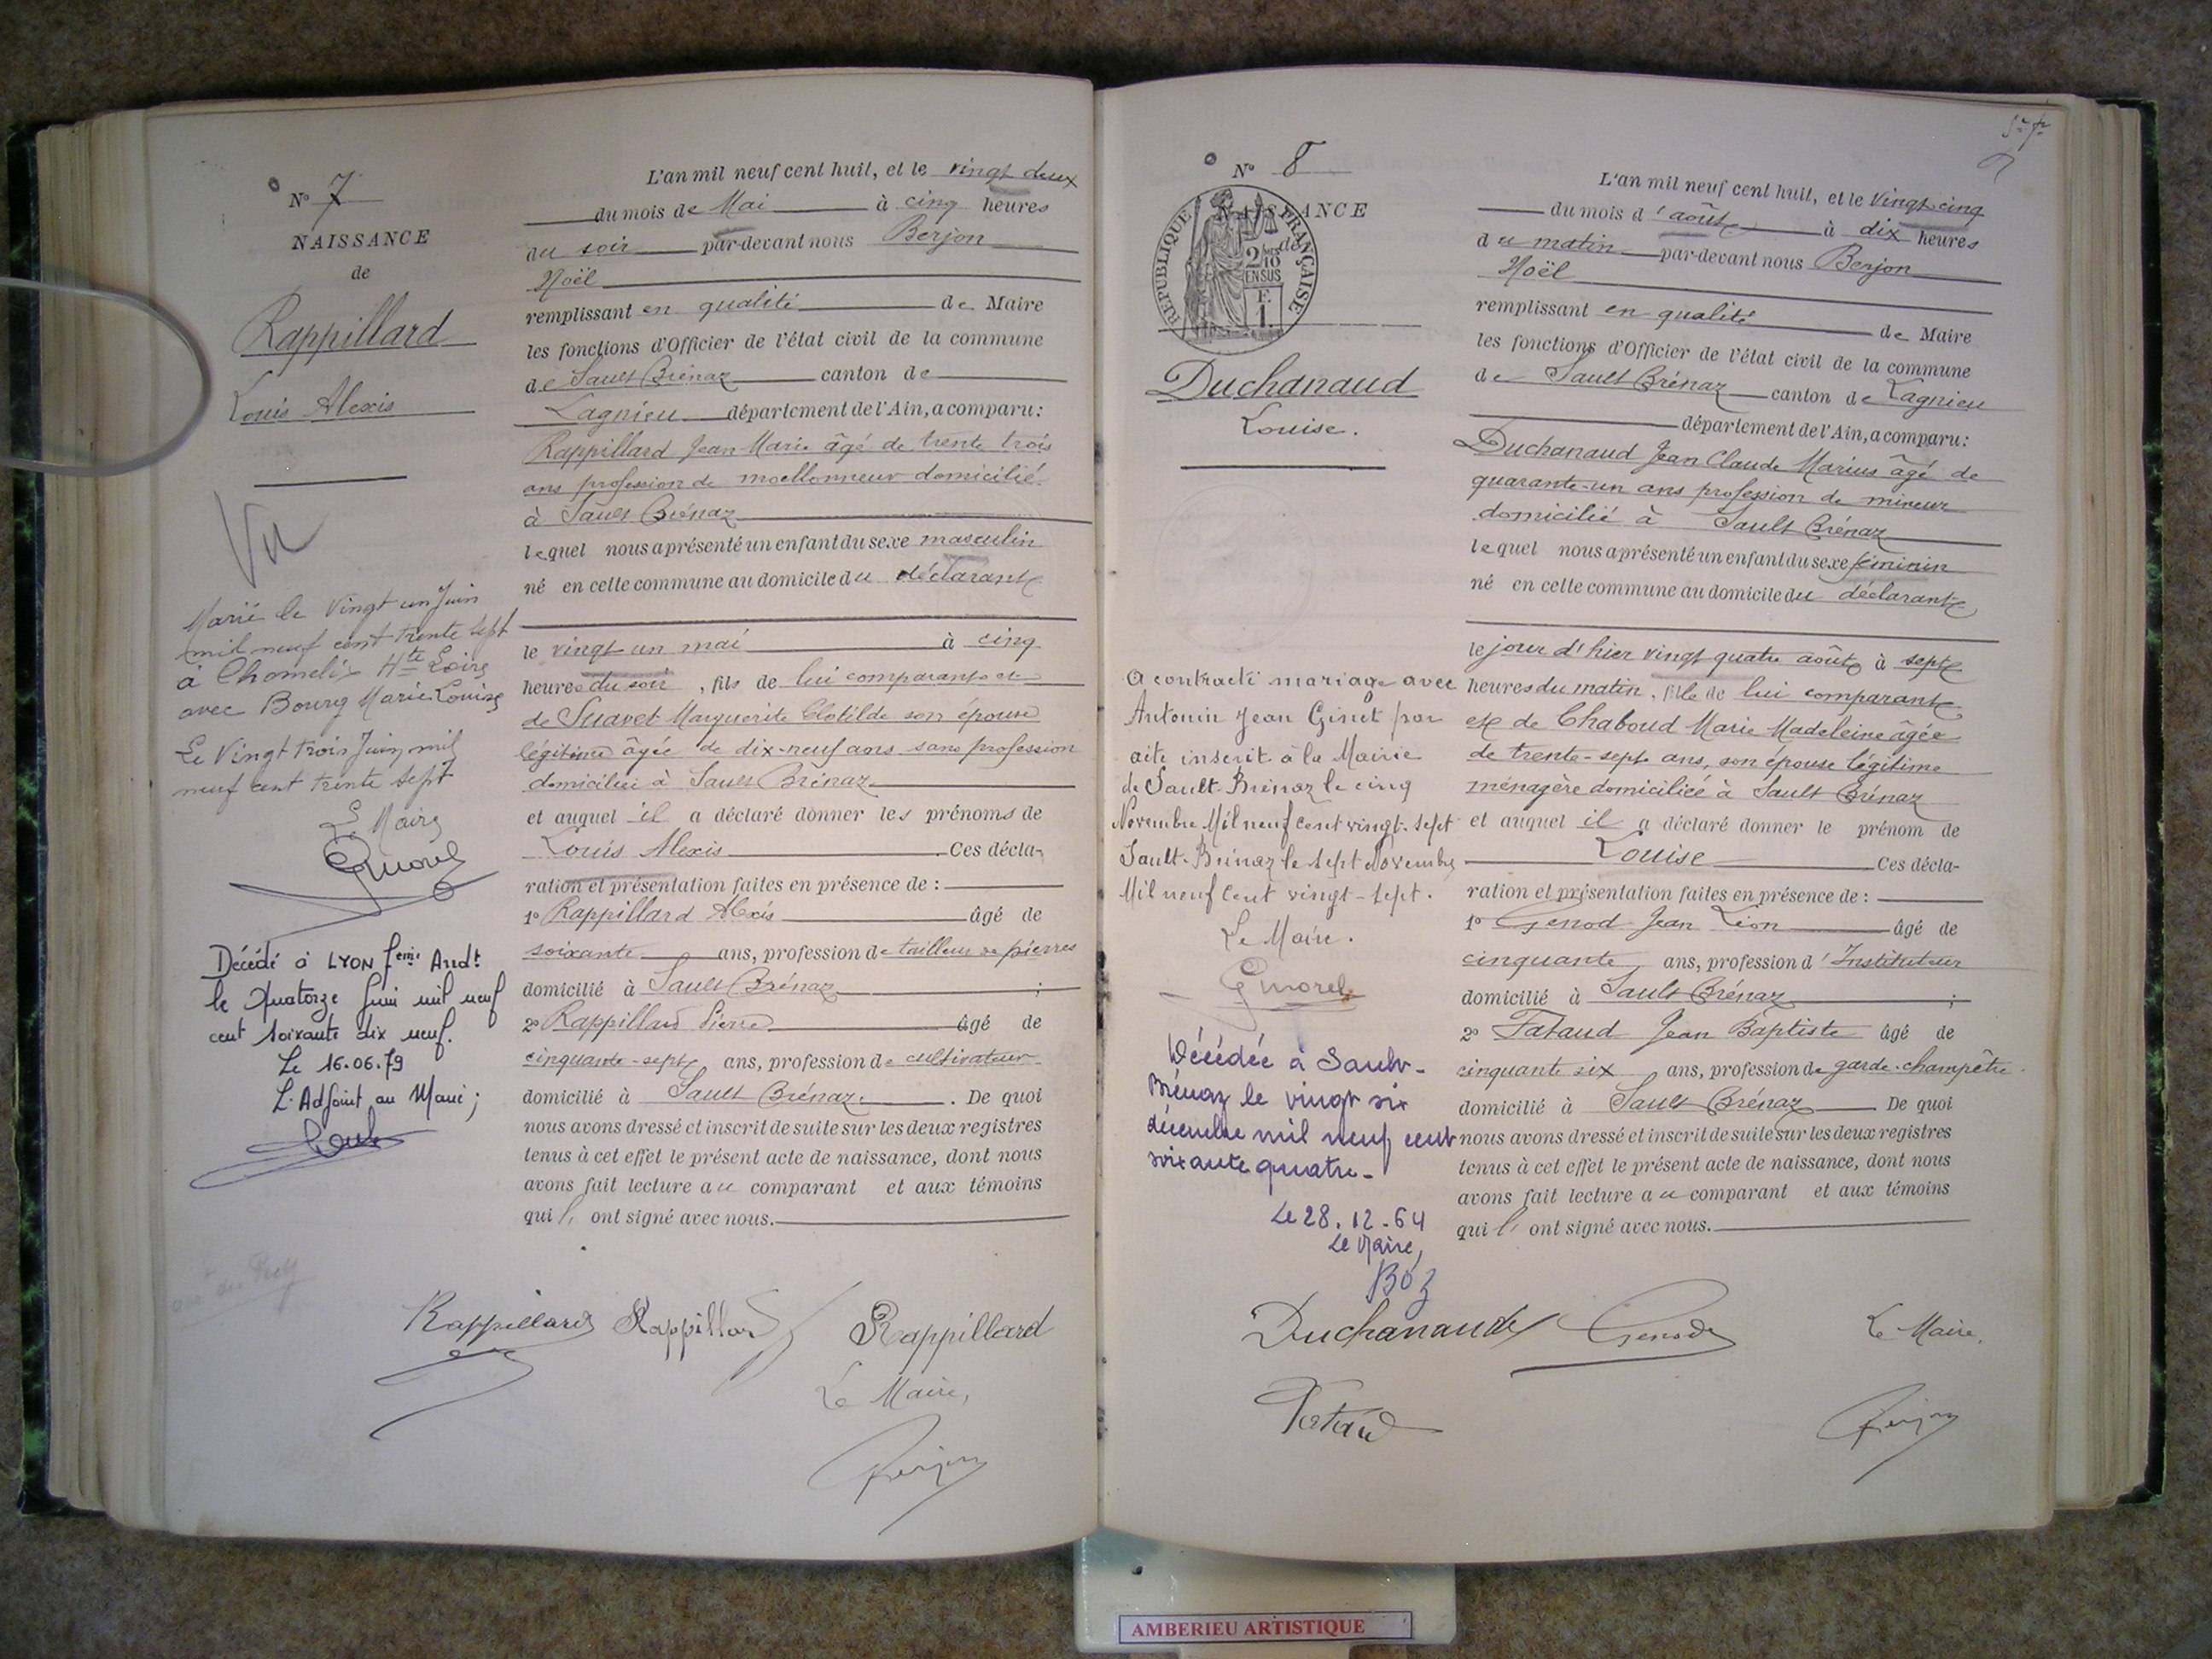 N° 7
NAISSANCE
de
Rappillard
Louis Alexis
Vu
Marié le Vingt un Juin
mil neuf cent trente sept
à Chomelix Hte Loire
avec Bourg Marie Louise
Le Vingt trois Juin mil
neuf cent trente sept
Le Maire
Décédé à LYON Arrdt
le Quatorze Juin mil neuf
cent soixante dix neuf.
Le 16.06.79
L'Adjoint au Maire;
L'an mil neuf cent huit, et le vingt deux
du mois de Mai à cinq heures
du soir par-devant nous Berjon
Noël
remplissant en qualité de Maire
les fonctions d'Officier de l'état civil de la commune
de Sault Brénaz canton de
Lagnieu département de l'Ain, a comparu:
Rappillard Jean Marie âgé de trente trois
ans profession de moellonneur domicilié
à Sault Brénaz
lequel nous a présenté un enfant du sexe masculin
né en cette commune au domicile du déclarant
le vingt un mai à cinq
heures du soir, fils de lui comparant et
de Suavet Marguerite Clotilde son épouse
légitime âgée de dix-neuf ans sans profession
domiciliée à Sault Brénaz
et auquel il a déclaré donner les prénoms de
Louis Alexis Ces décla-
ration et présentation faites en présence de :
1° Rappillard Alexis âgé de
soixante ans, profession de tailleur de pierres
domicilié à Sault Brénaz ;
2° Rappillard Pierre âgé de
cinquante-sept ans, profession de cultivateur
domicilié à Sault Brénaz. De quoi
nous avons dressé et inscrit de suite sur les deux registres
tenus à cet effet le présent acte de naissance, dont nous
avons fait lecture au comparant et aux témoins
qui l' ont signé avec nous.
Rappillard Rappillard Rappillard
Le Maire,
Berjon
N° 8
NAISSANCE
de
REPUBLIQUE FRANÇAISE
2/10 EN SUS
F. 1.
Duchanaud
Louise.
A contracté mariage avec
Antonin Jean Ginet par
acte inscrit à la Mairie
de Sault-Brénaz le cinq
Novembre Mil neuf cent vingt-sept
Sault-Brénaz le sept Novembre
Mil neuf cent vingt-sept.
Le Maire.
Décédée à Sault-
Brénaz le vingt six
décembre mil neuf cent
soixante quatre-
Le 28.12-64
Le Maire,
L'an mil neuf cent huit, et le Vingt cinq
du mois d'août à dix heures
du matin par-devant nous Berjon
Noël
remplissant en qualité de Maire
les fonctions d'Officier de l'état civil de la commune
de Sault Brénaz canton de Lagnieu
département de l'Ain, a comparu:
Duchanaud Jean Claude Marius âgé de
quarante-un ans profession de mineur
domicilié à Sault Brénaz
lequel nous a présenté un enfant du sexe féminin
né en cette commune au domicile du déclarant
le jour d'hier vingt quatre août à sept
heures du matin, fille de lui comparant
et de Chaboud Marie Madeleine âgée
de trente-sept ans, son épouse légitime
ménagère domiciliée à Sault Brénaz
et auquel il a déclaré donner le prénom de
Louise Ces décla-
ration et présentation faites en présence de :
1° Genod Jean Léon âgé de
cinquante ans, profession d'Instituteur
domicilié à Sault Brénaz ;
2° Tataud Jean Baptiste âgé de
cinquante six ans, profession de garde-champêtre
domicilié à Sault Brénaz De quoi
nous avons dressé et inscrit de suite sur les deux registres
tenus à cet effet le présent acte de naissance, dont nous
avons fait lecture au comparant et aux témoins
qui l' ont signé avec nous.
Duchanaud Genod Le Maire,
Berjon
AMBERIEU ARTISTIQUE